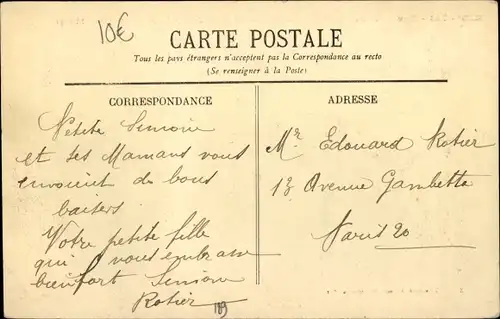 10€
CARTE POSTALE
Tous les pays étrangers n'acceptent pas la Correspondance au recto
(Se renseigner à la Poste)
CORRESPONDANCE
Petite Simone
et ses Mamans vous
envoient de bons
baisers
Votre petite fille
qui vous embrasse
bien fort Simone
Rotier
ADRESSE
Mr Edouard Rotier
13 Avenue Gambetta
Paris 20
189